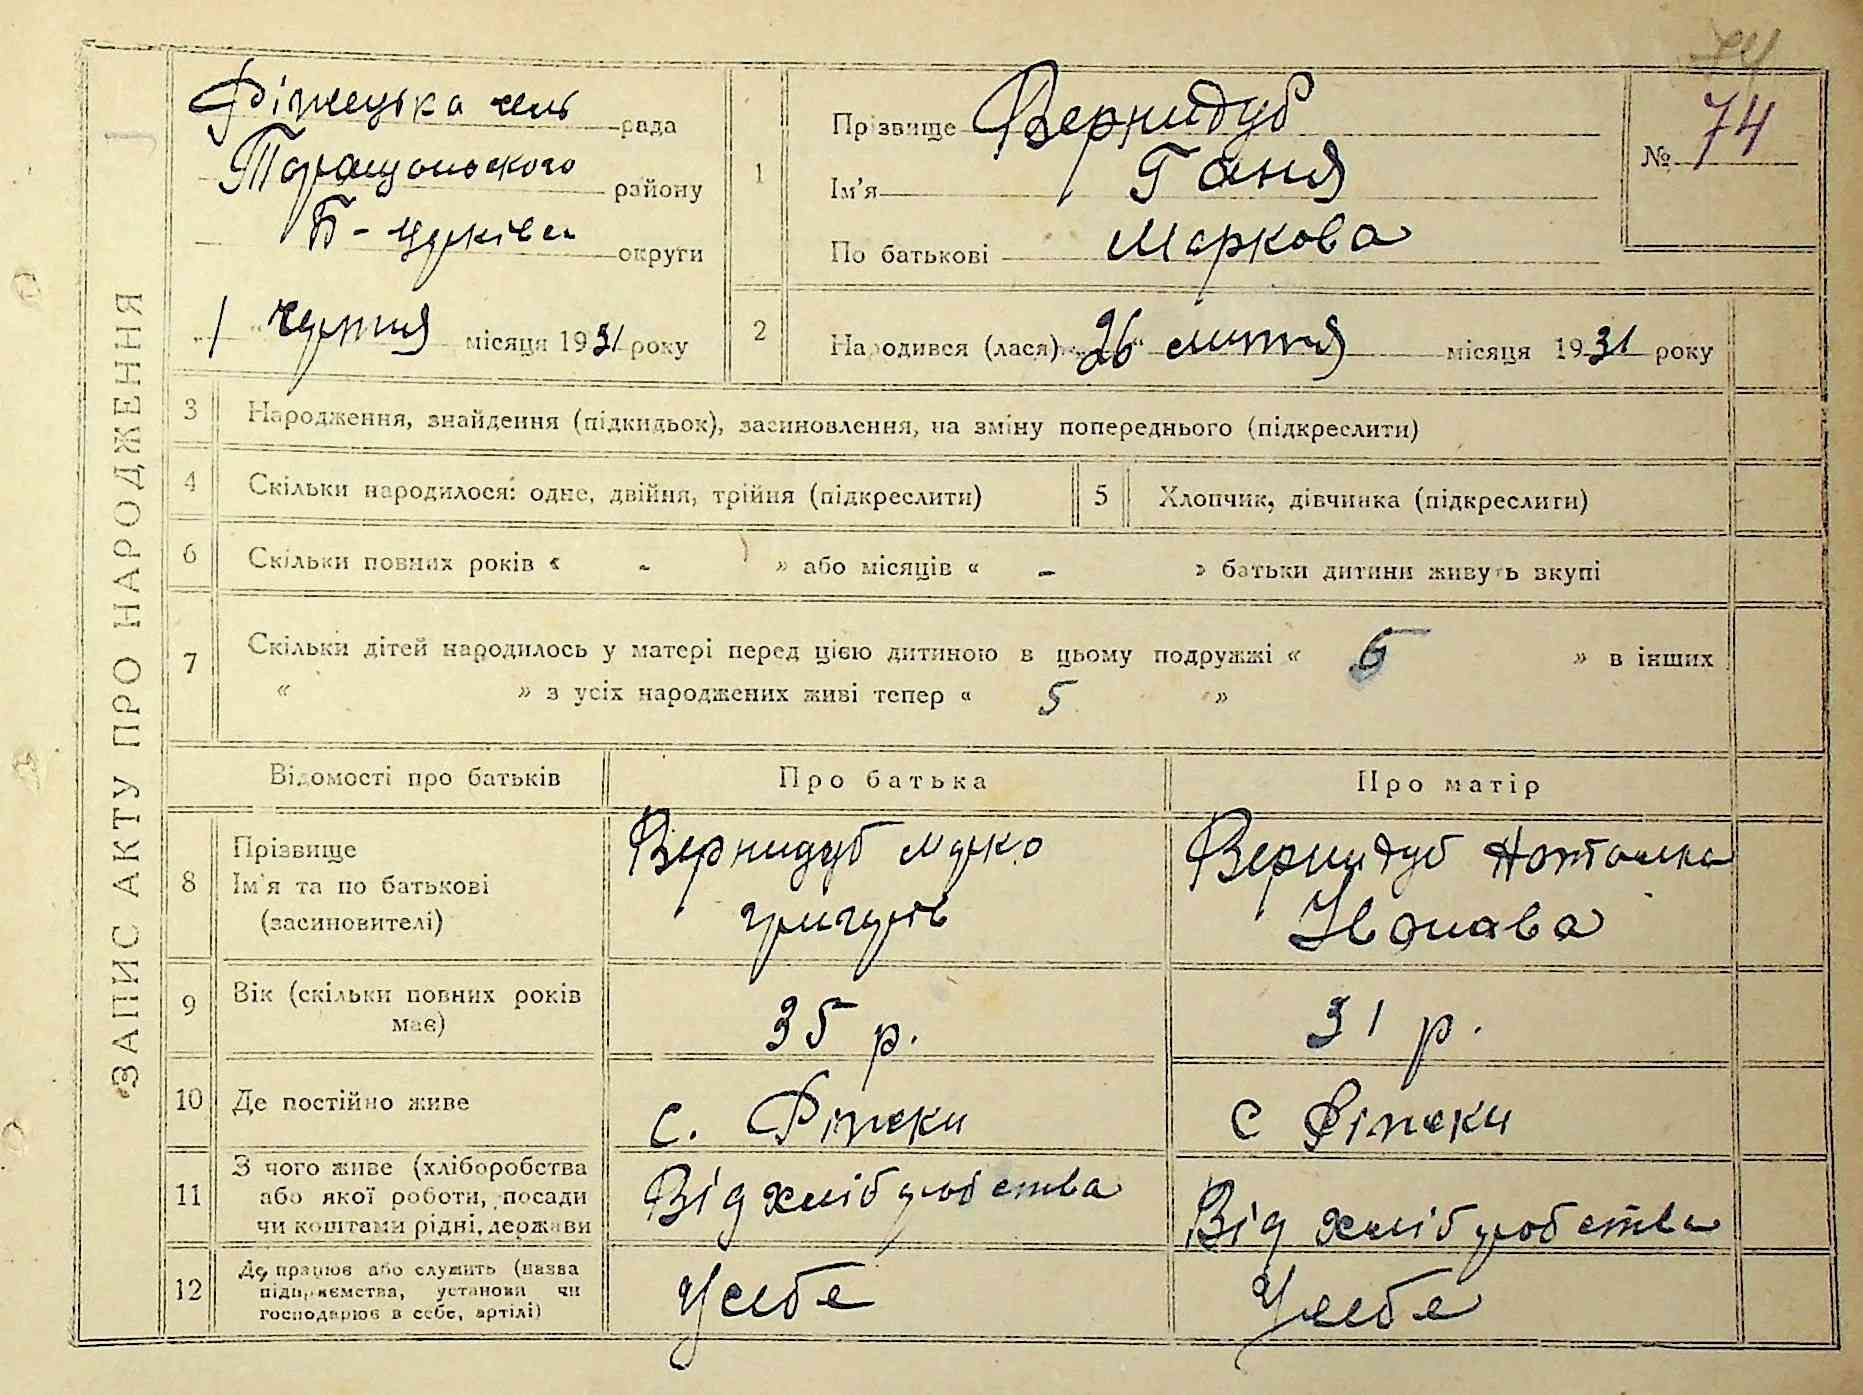 74
ЗАПИС АКТУ ПРО НАРОДЖЕННЯ
Ріжецька сіль рада
Таращанського району
Б-церківс округи
"1" червня місяця 1931 року
1 Прізвище Вернидуб
Ім'я Ганя
По батькові Маркова
№ 74
2 Народився (лася) "26" липня місяця 1931 року
3 Народження, знайдення (підкидьок), засиновлення, на зміну попереднього (підкреслити)
4 Скільки народилося: одне, двійня, трійня (підкреслити) 5 Хлопчик, дівчинка (підкреслити)
6 Скільки повних років « - » або місяців « - » батьки дитини живуть вкупі
7 Скільки дітей народилось у матері перед цією дитиною в цьому подружжі « 6 » в інших
« » з усіх народжених живі тепер « 5 »
Відомості про батьків Про батька Про матір
8 Прізвище
Ім'я та по батькові
(засиновителі)
Вернидуб Марко
Григурів
Вернидуб Наталка
Іванава
9 Вік (скільки повних років
має)
35 р.
31 р.
10 Де постійно живе с. Ріжки с Ріжки
11 З чого живе (хліборобства
або якої роботи, посади
чи коштами рідні, держави
Від хліб робства
Від хліб робства
12 Де працює або служить (назва
підприємства, установи чи
господарює в себе, артілі)
Усебе
Усебе